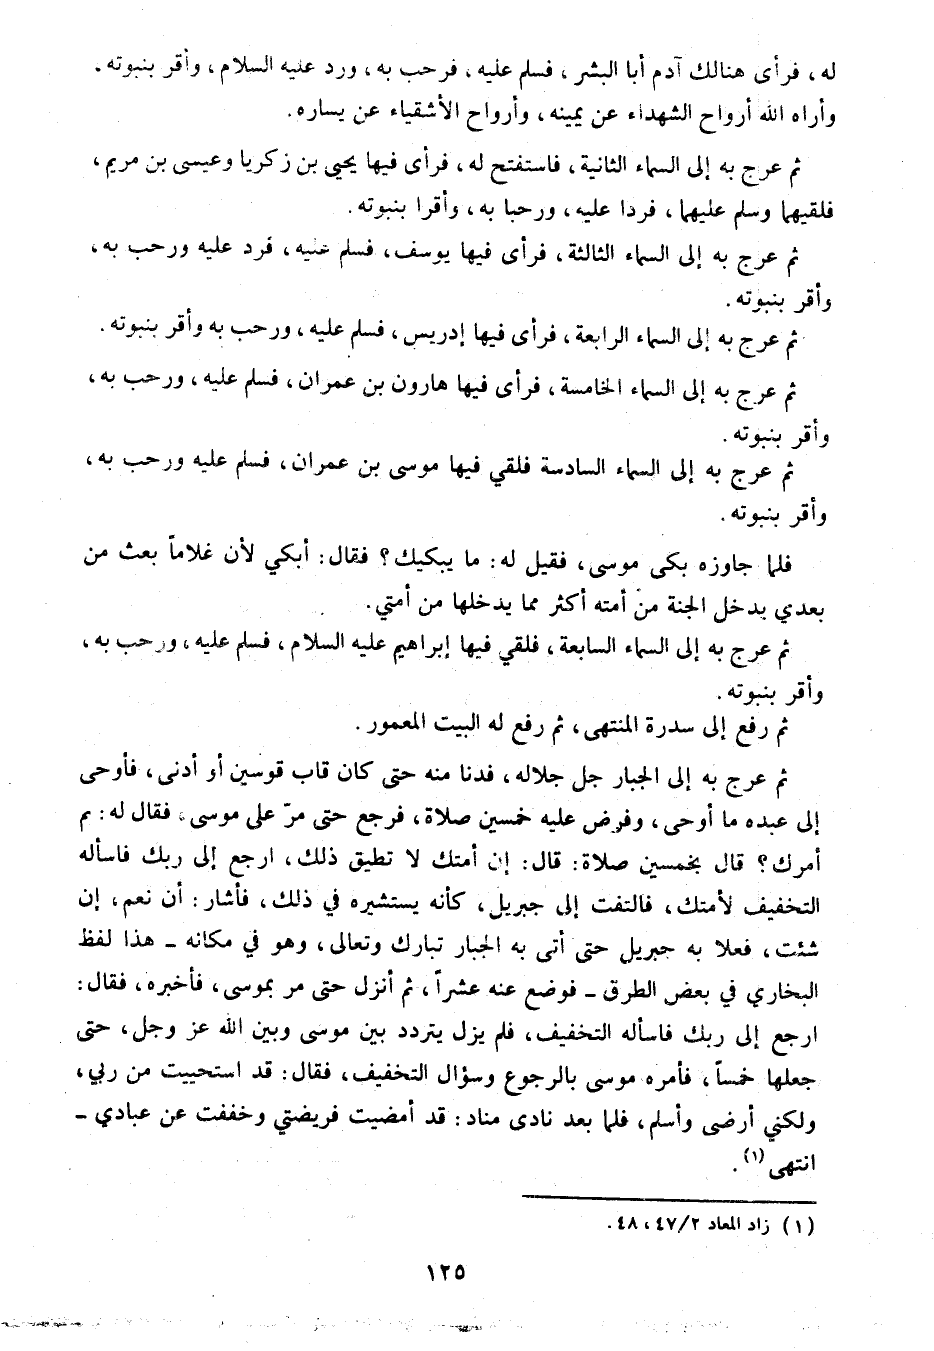 له، فرأى هنالك آدم أبا البشر، فسلم عليه، فرحب به، ورد عليه السلام، وأقر بنبوته.
وأراه الله أرواح الشهداء عن يمينه، وأرواح الأشقياء عن يساره.
ثم عرج به إلى السماء الثانية، فاستفتح له، فرأى فيها يحيى بن زكريا وعيسى بن مريم،
فلقيهما وسلم عليهما، فردا عليه، ورحبا به، وأقرا بنبوته.
ثم عرج به إلى السماء الثالثة، فرأى فيها يوسف، فسلم عليه، فرد عليه ورحب به،
وأقر بنبوته.
ثم عرج به إلى السماء الرابعة، فرأى فيها إدريس، فسلم عليه، ورحب به وأقر بنبوته.
ثم عرج به إلى السماء الخامسة، فرأى فيها هارون بن عمران، فسلم عليه، ورحب به،
وأقر بنبوته.
ثم عرج به إلى السماء السادسة فلقي فيها موسى بن عمران، فسلم عليه ورحب به،
وأقر بنبوته.
فلما جاوزه بكى موسى، فقيل له: ما يبكيك؟ فقال: أبكي لأن غلاماً بعث من
بعدي يدخل الجنة من أمته أكثر مما يدخلها من أمتي.
ثم عرج به إلى السماء السابعة، فلقي فيها إبراهيم عليه السلام، فسلم عليه، ورحب به،
وأقر بنبوته.
ثم رفع إلى سدرة المنتهى، ثم رفع له البيت المعمور.
ثم عرج به إلى الجبار جل جلاله، فدنا منه حتى كان قاب قوسين أو أدنى، فأوحى
إلى عبده ما أوحى، وفرض عليه خمسين صلاة، فرجع حتى مرّ على موسى، فقال له: بم
أمرك؟ قال بخمسين صلاة: قال: إن أمتك لا تطيق ذلك، ارجع إلى ربك فاسأله
التخفيف لأمتك، فالتفت إلى جبريل، كأنه يستشيره في ذلك، فأشار: أن نعم، إن
شئت، فعلا به جبريل حتى أتى به الجبار تبارك وتعالى، وهو في مكانه - هذا لفظ
البخاري في بعض الطرق - فوضع عنه عشراً، ثم أنزل حتى مر بموسى، فأخبره، فقال:
ارجع إلى ربك فاسأله التخفيف، فلم يزل يتردد بين موسى وبين الله عز وجل، حتى
جعلها خمساً، فأمره موسى بالرجوع وسؤال التخفيف، فقال: قد استحييت من ربي،
ولكني أرضى وأسلم، فلما بعد نادى مناد: قد أمضيت فريضتي وخففت عن عبادي -
انتهى(١).
(١) زاد المعاد ٢/ ٤٧، ٤٨.
١٢٥